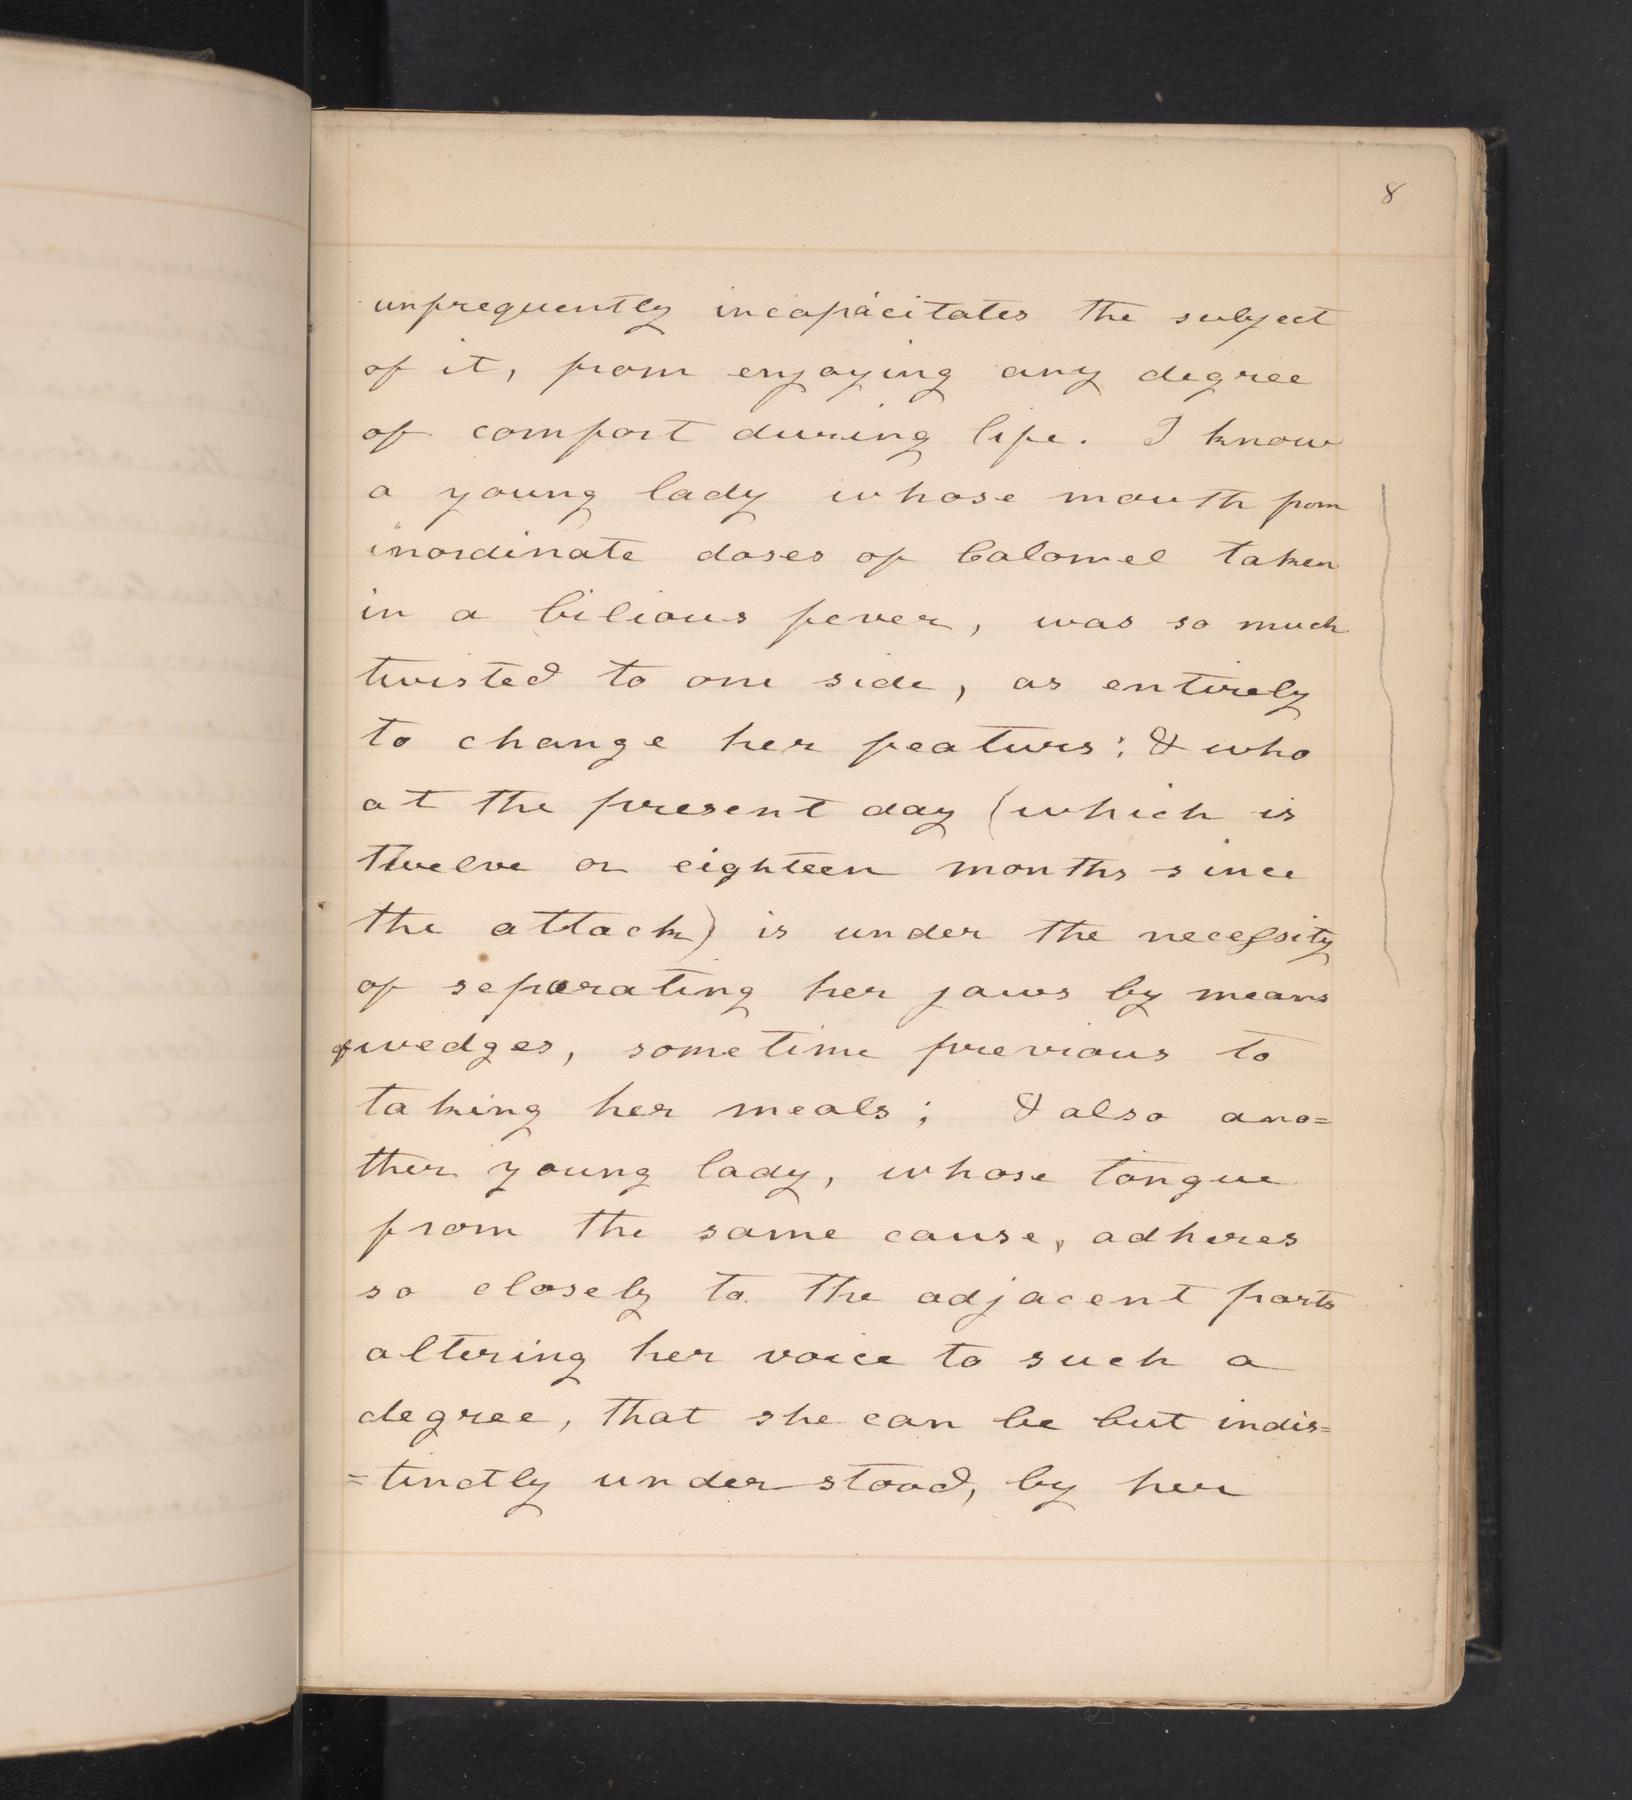 8
unfrequently incapacitates the subject
of it, from enjoying any degree
of comfort during life. I know
a young lady whose mouth from
inordinate doses of Calomel taken
in a bilious fever, was so much
twisted to one side, as entirely
to change her featurs; & who
at the present day (which is
twelve or eighteen months since
the attack) is under the necessity
of separating her jaws by means
of wedges, sometime previous to
taking her meals; & also ano=
ther young lady, whose tongue
from the same cause, adheres
so closely to the adjacent parts
altering her voice to such a
degree, that she can be but indis=
=tinctly understood, by her